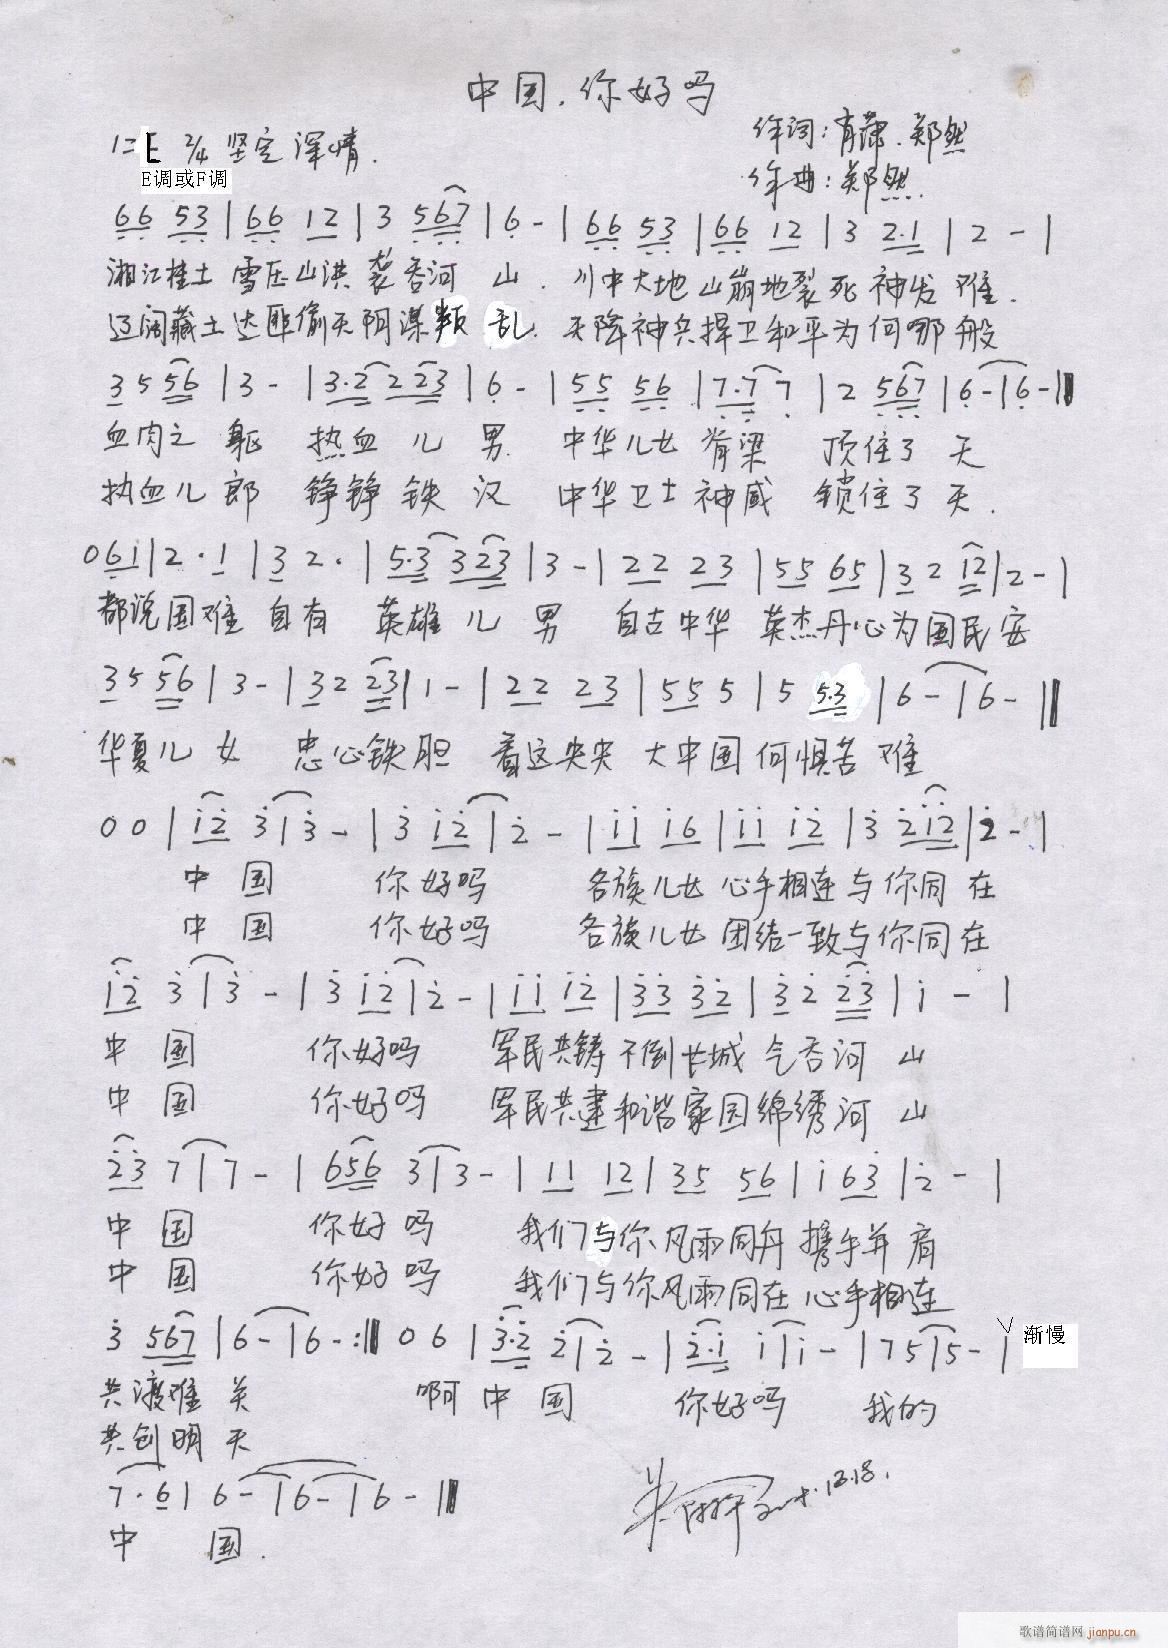 中国，你好吗
作词：肖萧、郑然
1=E 2/4 坚定 深情.
E调或F调
作曲：郑然
66 53 | 66 12 | 3 567 | 6 - | 66 53 | 66 12 | 3 2·1 | 2 - |
湘江桂土 雪压山洪 袭吞河 山. 川中大地 山崩地裂 死神发难.
辽阔藏土 达匪偷天阴谋叛 乱. 天降神兵捍卫和平为何哪般
35 56 | 3 - | 3·2 2 23 | 6 - | 55 56 | 7·7 7 | 2 567 | 6 - | 6 - ‖
血肉之 躯 热血 儿 男. 中华儿女 脊梁 顶住了 天
热血儿 郎 铮铮 铁 汉 中华卫士 神威 锁住了 天.
061 | 2·1 | 3 2· | 5·3 3 23 | 3 - | 22 23 | 55 65 | 3 2 12 | 2 - |
都说国难 自有 英雄 儿 男 自古中华 英杰丹心为国民安
35 56 | 3 - | 32 23 | 1 - | 22 23 | 55 5 | 5 5·3 | 6 - | 6 - ‖
华夏儿 女 忠心铁胆 看这央央 大中国何惧苦 难
0 0 | 12 3 | 3 - | 3 12 | 2 - | 11 16 | 11 12 | 3 212 | 2 - |
中 国 你好吗 各族儿女 心手相连与你同 在
中 国 你好吗 各族儿女 团结一致与你同在
12 3 | 3 - | 3 12 | 2 - | 11 12 | 33 32 | 32 23 | 1 - |
中 国 你好吗 军民共铸 不倒长城 气吞河 山
中 国 你好吗 军民共建和谐家园绵绣河 山
23 7 | 7 - | 656 3 | 3 - | 11 12 | 35 56 | 1 63 | 2 - |
中 国 你好吗 我们与你风雨同舟 携手并肩
中 国 你好吗 我们与你风雨同在 心手相连
3 567 | 6 - | 6 - :‖ 0 6 | 3·2 2 | 2 - | 2·1 1 | 1 - | 7 5 | 5 - | 渐慢
共渡难 关 啊 中 国 你好吗 我的
共创明 天
7·6 | 6 - | 6 - | 6 - ‖
12.18.
中 国.
歌谱简谱网 jianpu.cn